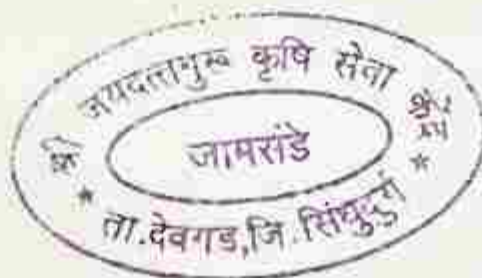 श्री जयदत्तगुरू कृषि सेवा केंद्र
जामसंडे
* ता.देवगड,जि.सिंधुदुर्ग *